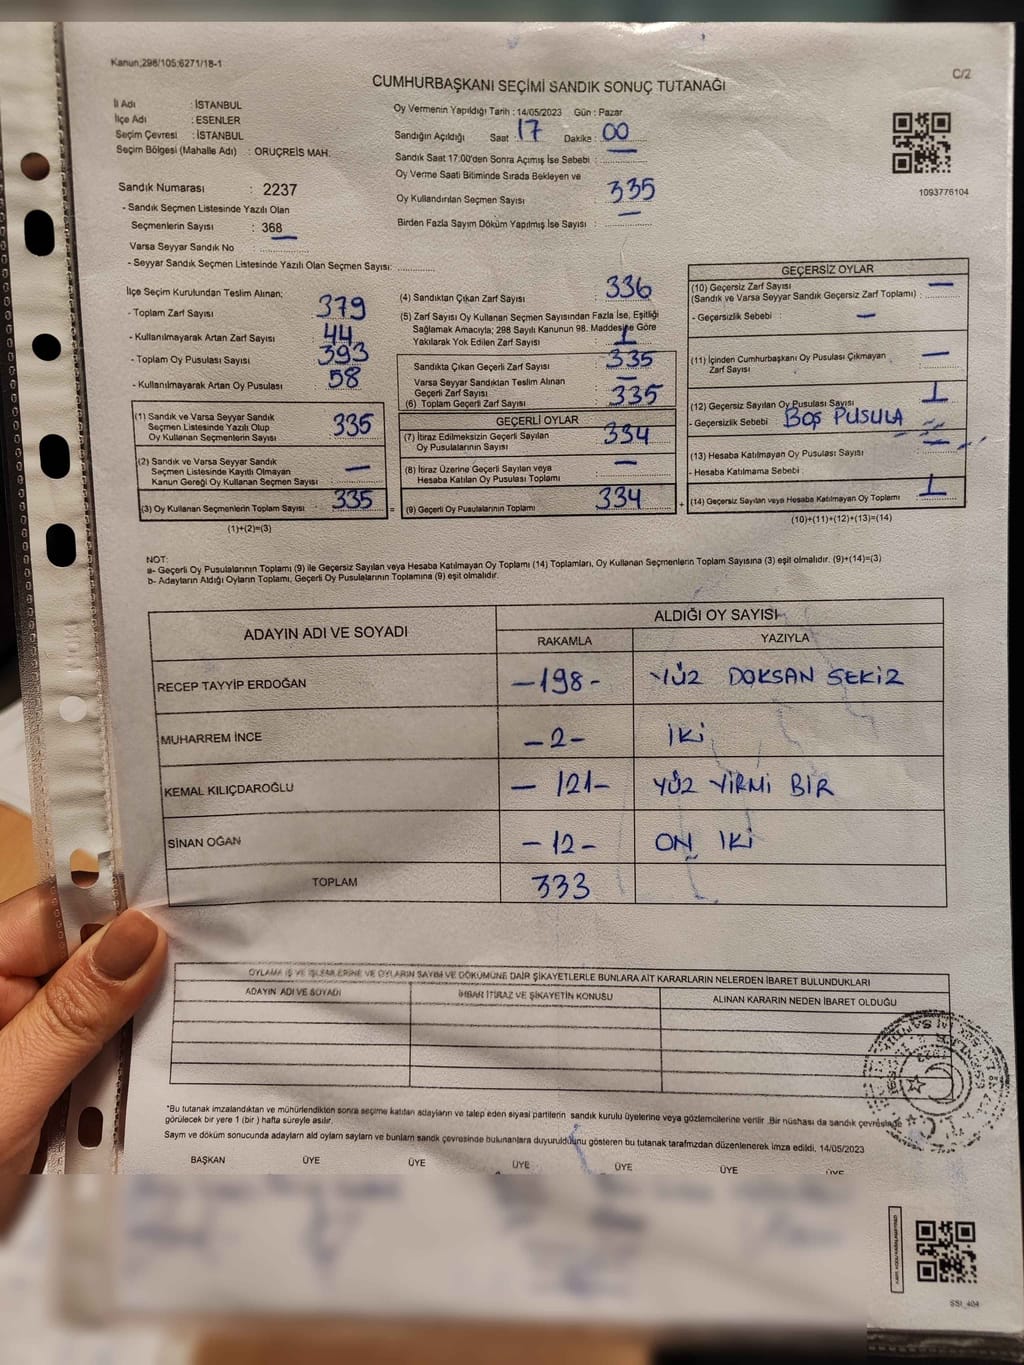 Kanun;298/105;6271/18-1
C/2
CUMHURBAŞKANI SEÇİMİ SANDIK SONUÇ TUTANAĞI
İl Adı : İSTANBUL
İlçe Adı : ESENLER
Seçim Çevresi : İSTANBUL
Seçim Bölgesi (Mahalle Adı) : ORUÇREİS MAH.
Oy Vermenin Yapıldığı Tarih : 14/05/2023 Gün : Pazar
Sandığın Açıldığı Saat : 17 Dakika : 00
Sandık Saat 17:00'den Sonra Açımış İse Sebebi : —
Oy Verme Saati Bitiminde Sırada Bekleyen ve
Oy Kullandırılan Seçmen Sayısı : 335
Birden Fazla Sayım Döküm Yapılmış İse Sayısı : —
1093776104
Sandık Numarası : 2237
- Sandık Seçmen Listesinde Yazılı Olan
Seçmenlerin Sayısı : 368
Varsa Seyyar Sandık No : —
- Seyyar Sandık Seçmen Listesinde Yazılı Olan Seçmen Sayısı:
İlçe Seçim Kurulundan Teslim Alınan;
- Toplam Zarf Sayısı : 379
- Kullanılmayarak Artan Zarf Sayısı : 44
- Toplam Oy Pusulası Sayısı : 393
- Kullanılmayarak Artan Oy Pusulası : 58
(1) Sandık ve Varsa Seyyar Sandık
Seçmen Listesinde Yazılı Olup
Oy Kullanan Seçmenlerin Sayısı : 335
(2) Sandık ve Varsa Seyyar Sandık
Seçmen Listesinde Kayıtlı Olmayan
Kanun Gereği Oy Kullanan Seçmen Sayısı : —
(3) Oy Kullanan Seçmenlerin Toplam Sayısı : 335
(1)+(2)=(3)
(4) Sandıktan Çıkan Zarf Sayısı : 336
(5) Zarf Sayısı Oy Kullanan Seçmen Sayısından Fazla İse, Eşitliği
Sağlamak Amacıyla; 298 Sayılı Kanunun 98. Maddesine Göre
Yakılarak Yok Edilen Zarf Sayısı : 1
Sandıkta Çıkan Geçerli Zarf Sayısı : 335
Varsa Seyyar Sandıktan Teslim Alınan
Geçerli Zarf Sayısı : —
(6) Toplam Geçerli Zarf Sayısı : 335
GEÇERLİ OYLAR
(7) İtiraz Edilmeksizin Geçerli Sayılan
Oy Pusulalarının Sayısı : 334
(8) İtiraz Üzerine Geçerli Sayılan veya
Hesaba Katılan Oy Pusulası Toplamı : —
(9) Geçerli Oy Pusulalarının Toplamı : 334
GEÇERSİZ OYLAR
(10) Geçersiz Zarf Sayısı
(Sandık ve Varsa Seyyar Sandık Geçersiz Zarf Toplamı) : —
- Geçersizlik Sebebi : —
(11) İçinden Cumhurbaşkanı Oy Pusulası Çıkmayan
Zarf Sayısı : —
(12) Geçersiz Sayılan Oy Pusulası Sayısı : 1
- Geçersizlik Sebebi BOŞ PUSULA
(13) Hesaba Katılmayan Oy Pusulası Sayısı : —
- Hesaba Katılmama Sebebi :
(14) Geçersiz Sayılan veya Hesaba Katılmayan Oy Toplamı : 1
(10)+(11)+(12)+(13)=(14)
NOT:
a- Geçerli Oy Pusulalarının Toplamı (9) ile Geçersiz Sayılan veya Hesaba Katılmayan Oy Toplamı (14) Toplamları, Oy Kullanan Seçmenlerin Toplam Sayısına (3) eşit olmalıdır. (9)+(14)=(3)
b- Adayların Aldığı Oyların Toplamı, Geçerli Oy Pusulalarının Toplamına (9) eşit olmalıdır.
ADAYIN ADI VE SOYADI ALDIĞI OY SAYISI
RAKAMLA YAZIYLA
RECEP TAYYİP ERDOĞAN -198- YÜZ DOKSAN SEKİZ
MUHARREM İNCE -2- İKİ
KEMAL KILIÇDAROĞLU -121- YÜZ YİRMİ BİR
SİNAN OĞAN -12- ON İKİ
TOPLAM 333
OYLAMA İŞ VE İŞLEMLERİNE VE OYLARIN SAYIM VE DÖKÜMÜNE DAİR ŞİKAYETLERLE BUNLARA AİT KARARLARIN NELERDEN İBARET BULUNDUKLARI
ADAYIN ADI VE SOYADI İHBAR İTİRAZ VE ŞİKAYETİN KONUSU ALINAN KARARIN NEDEN İBARET OLDUĞU
*Bu tutanak imzalandıktan ve mühürlendikten sonra seçime katılan adayların ve talep eden siyasi partilerin sandık kurulu üyelerine veya gözlemcilerine verilir .Bir nüshası da sandık çevresinde
görülecek bir yere 1 (bir ) hafta süreyle asılır.
Sayım ve döküm sonucunda adayların ald oyların sayları ve bunların sandk çevresinde bulunanlara duyurulduğunu gösteren bu tutanak tarafmzdan düzenlenerek imza edildi. 14/05/2023
BAŞKAN ÜYE ÜYE ÜYE ÜYE ÜYE ÜYE
SSI_404